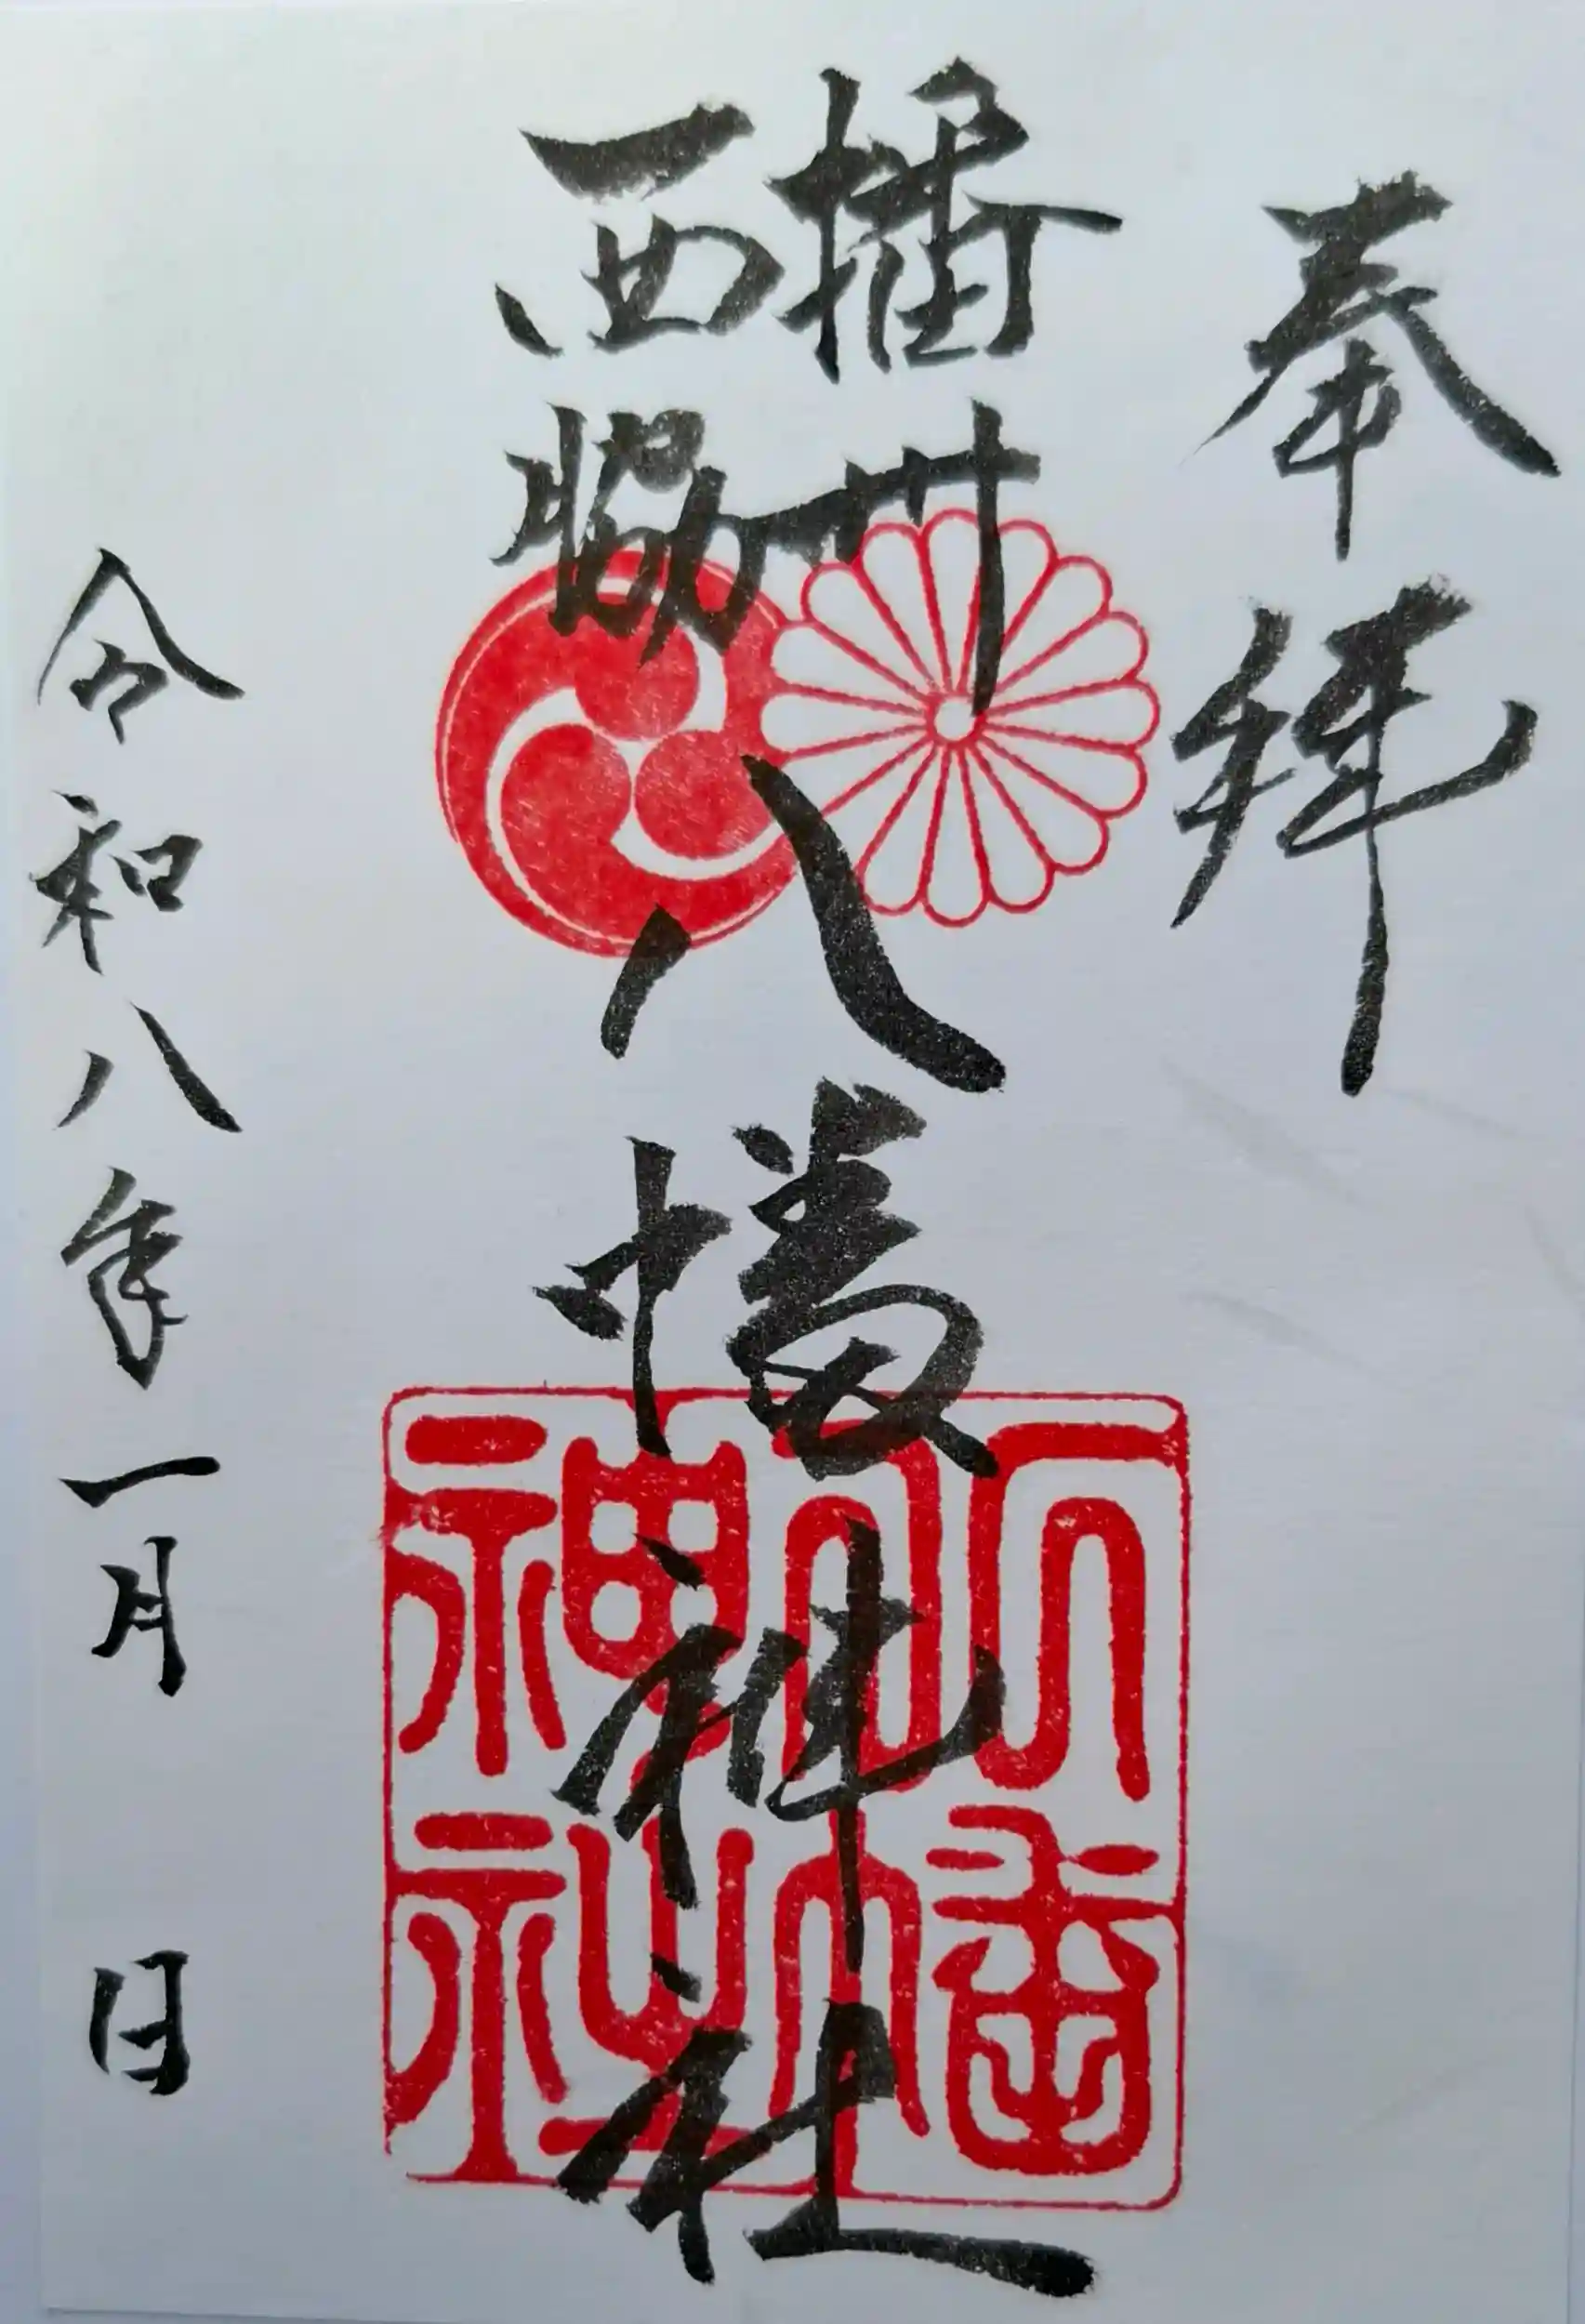 奉拝
播州
西脇
八幡神社
八幡神社
令和八年一月 日